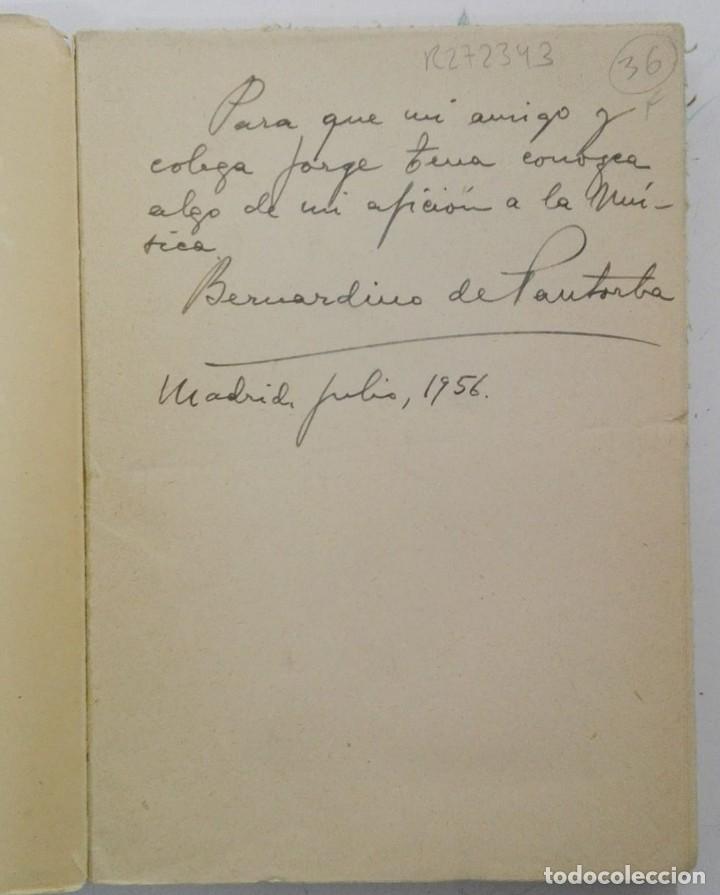 R272343
36
F
Para que mi amigo y
colega Jorge Tena conozca
algo de mi afición a la Mú-
sica
Bernardino de Pantorba
Madrid, julio, 1956.
todocoleccion